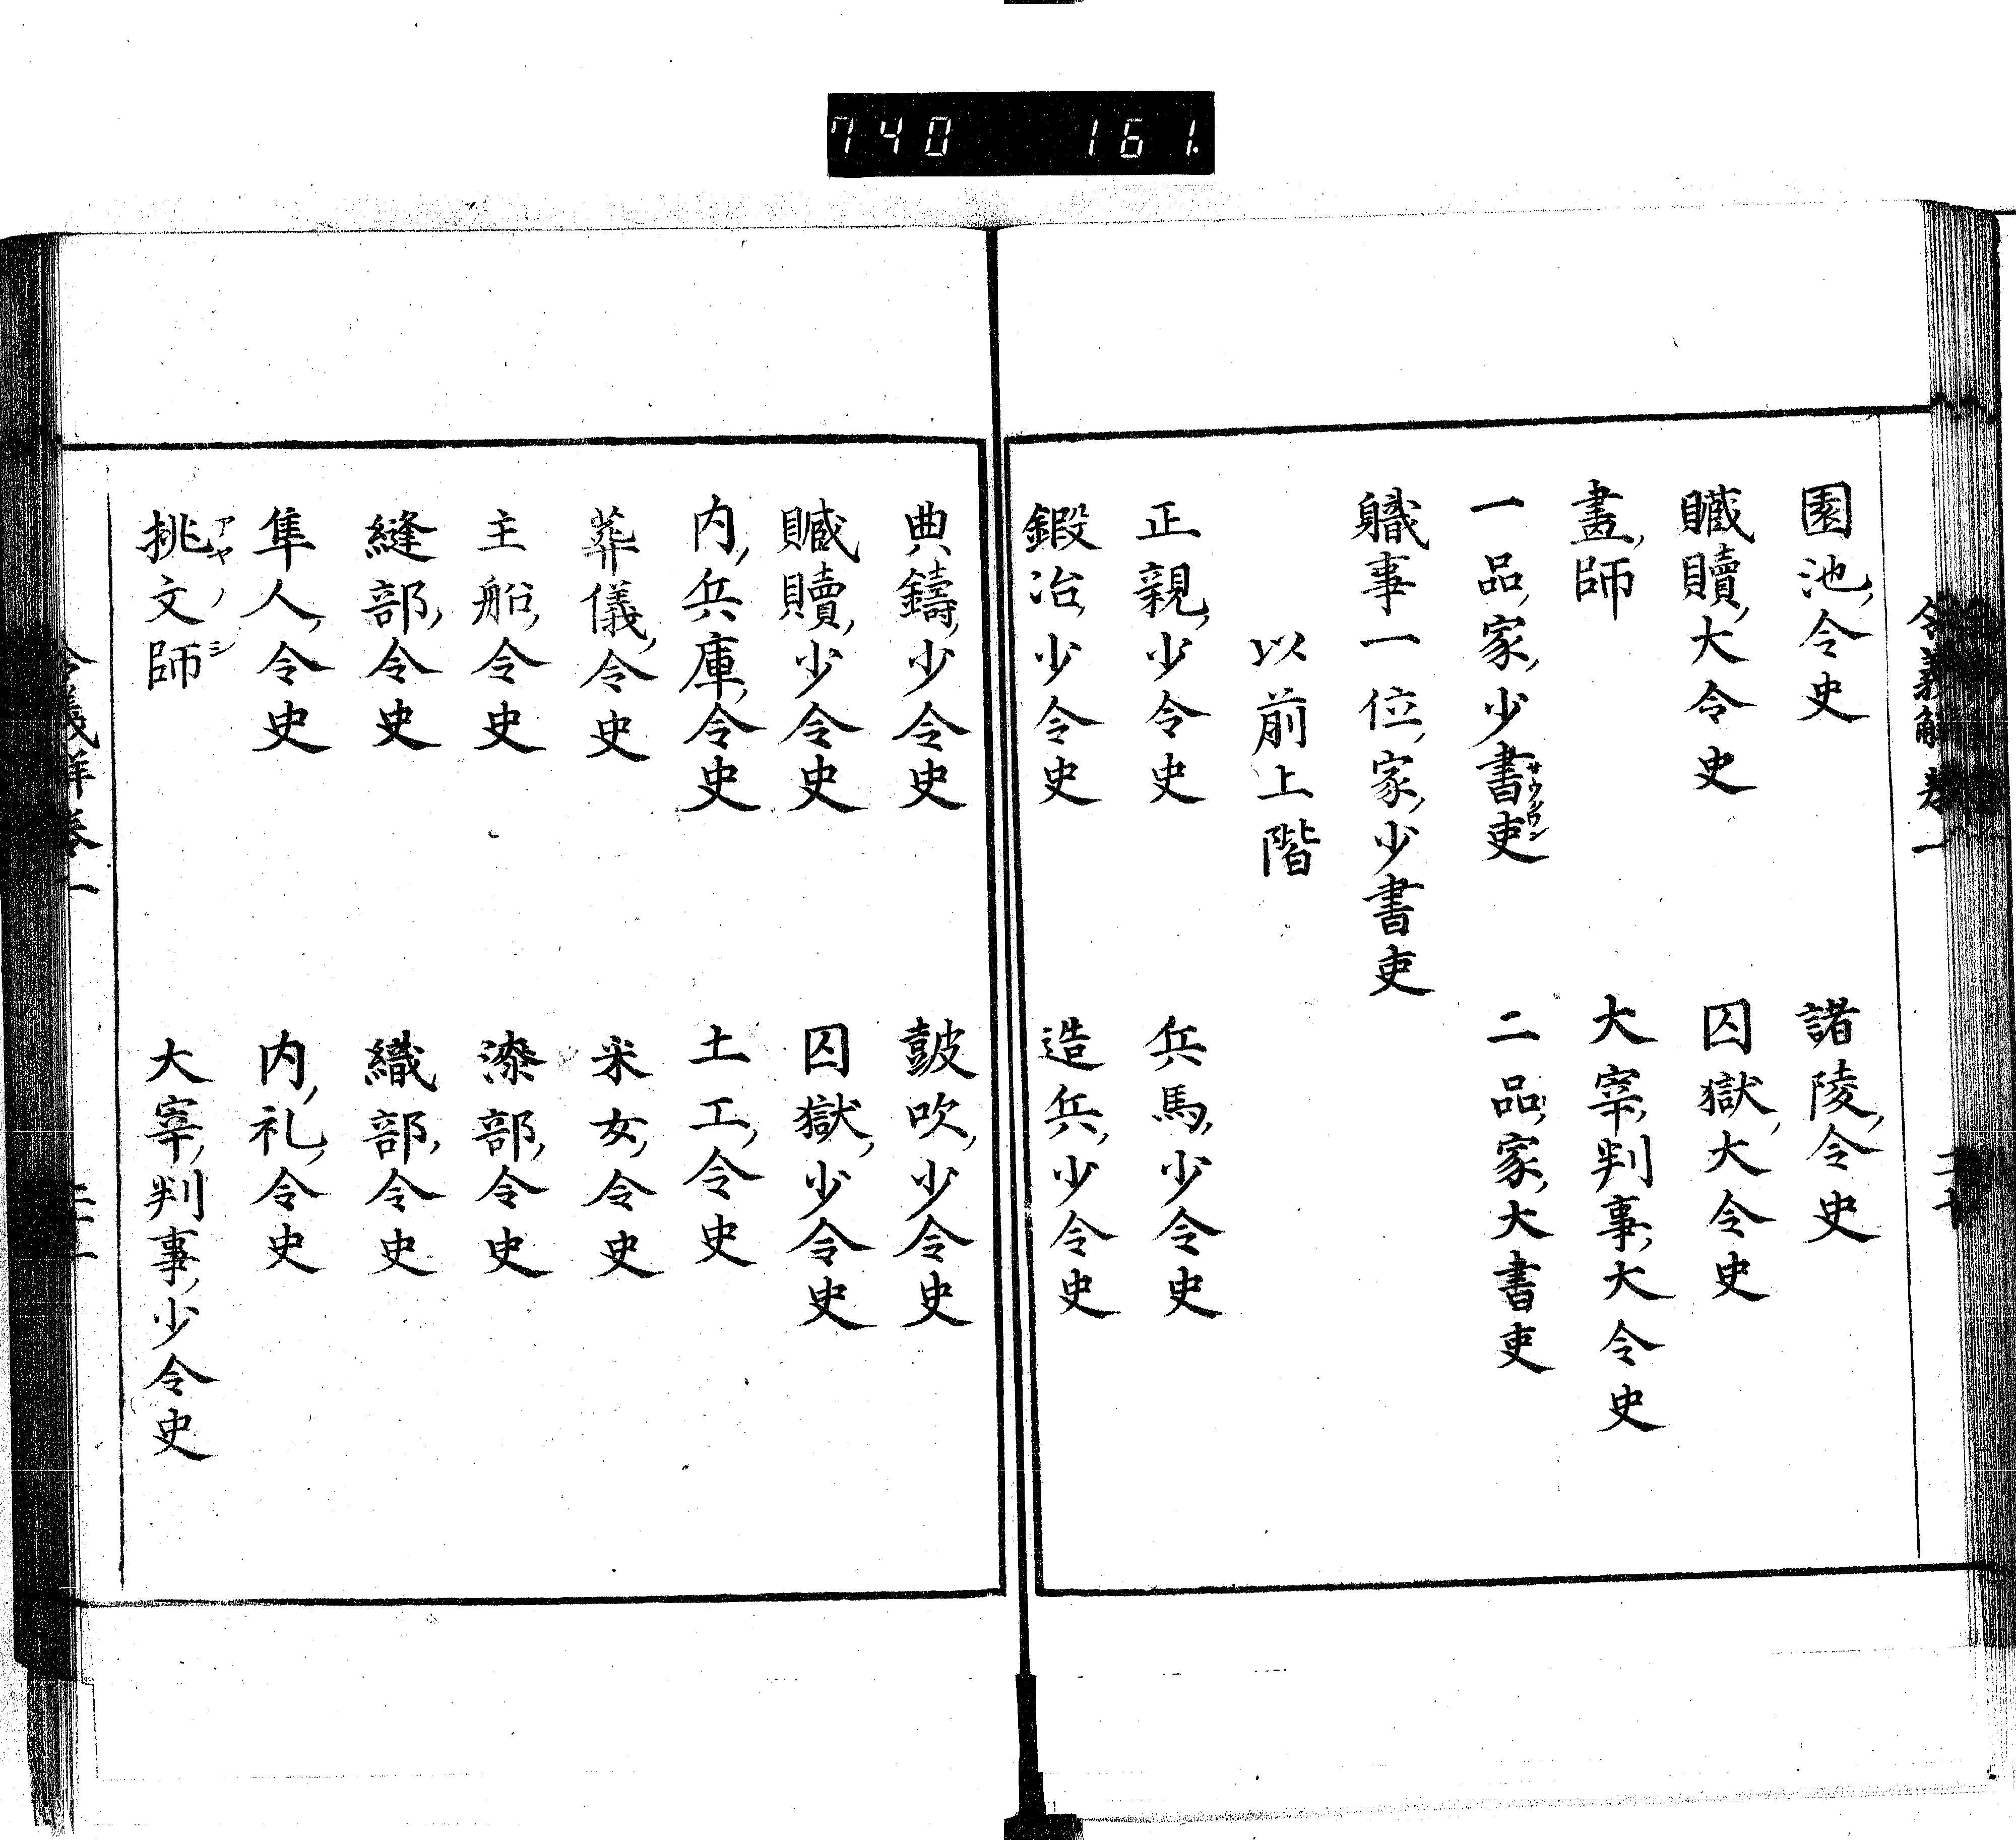 740 161.
令義解卷一
園池令史 諸陵令史
贓贖大令史 囚獄大令史
畫師 大宰判事大令史
一品家少書吏 二品家大書吏
職事一位家少書吏
以前上階
正親少令史 兵馬少令史
鍛冶少令史 造兵少令史
典鑄少令史 皷吹少令史
贓贖少令史 囚獄少令史
内兵庫令史 土工令史
葬儀令史 采女令史
主船令史 漆部令史
縫部令史 織部令史
隼人令史 内礼令史
アヤノシ
挑文師 大宰判事少令史
令義解卷一